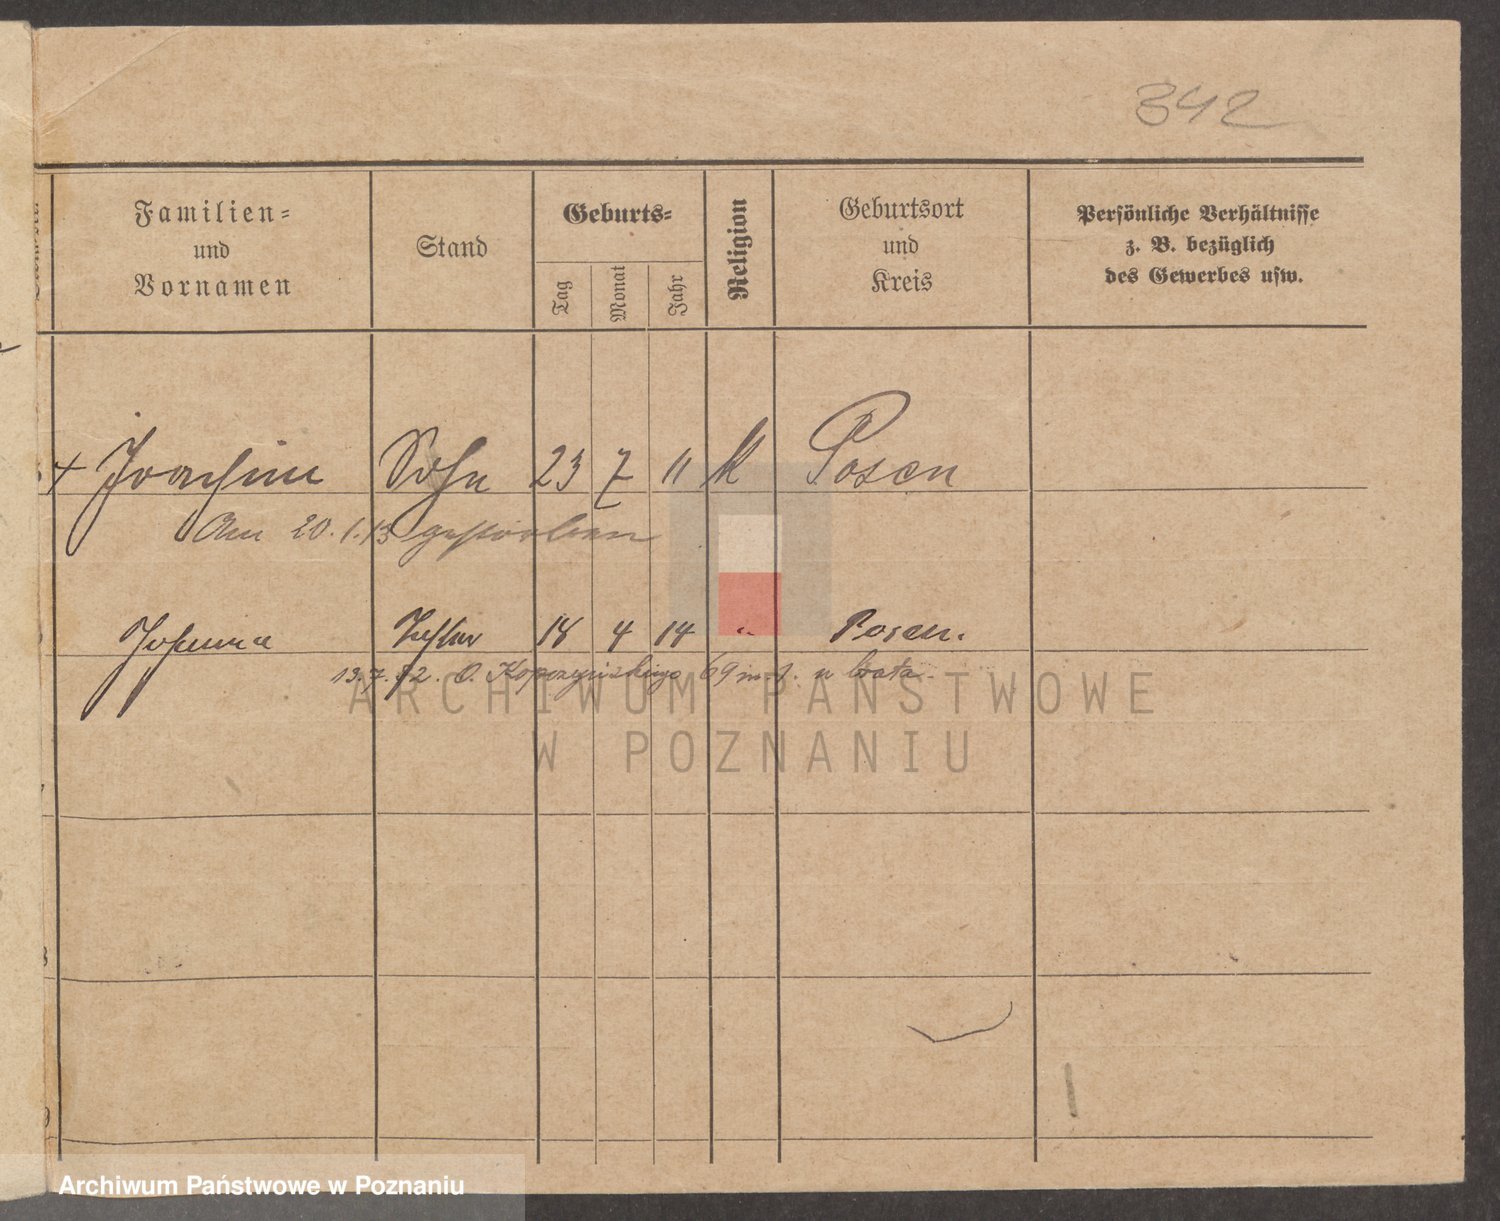 342
Familien=
und
Vornamen
Stand
Geburts=
Tag
Monat
Jahr
Religion
Geburtsort
und
Kreis
Persönliche Verhältnisse
z. B. bezüglich
des Gewerbes usw.
+ Joachim Sohn 23 7 11 k Posen
Am 20.1.13 gestorben
Johanna Tochter 18 4 14 " Posen.
13.7.32. O. Kopczyńskiego 69 m. 1. u brata.
ARCHIWUM PAŃSTWOWE
W POZNANIU
Archiwum Państwowe w Poznaniu